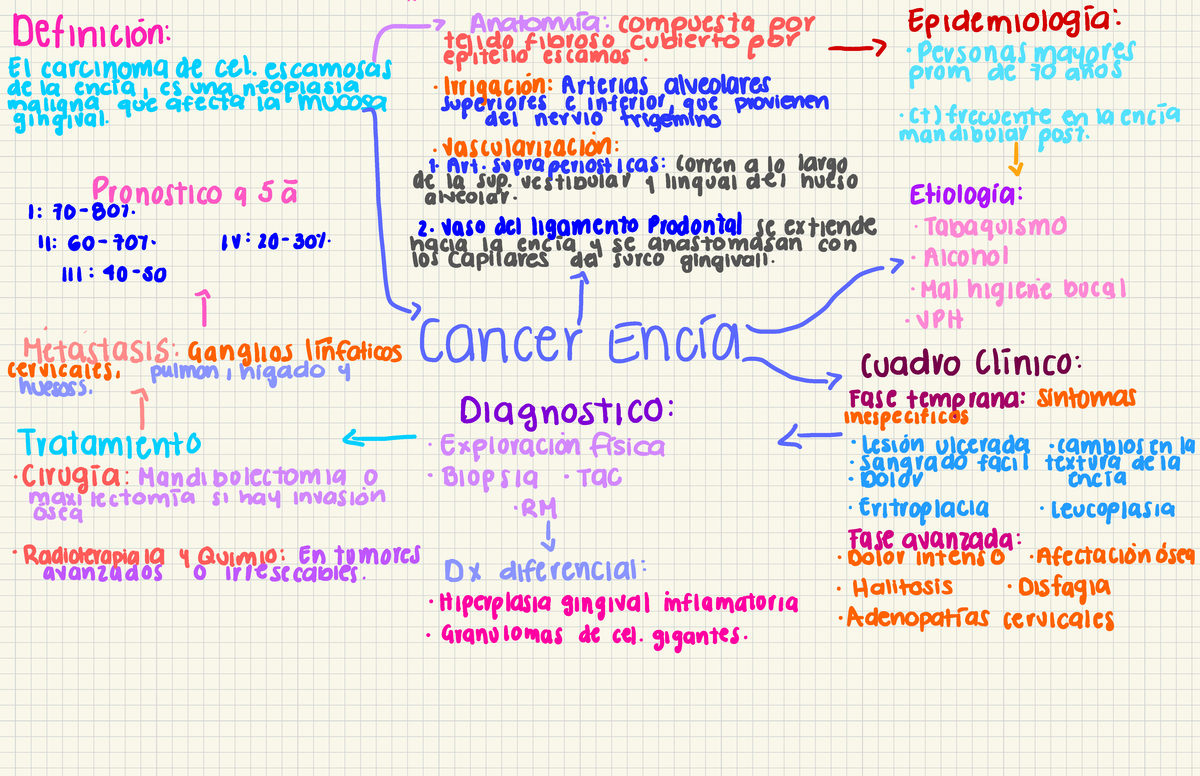 Definición:
El carcinoma de cel. escamosas
de la encía, es una neoplasia
maligna que afecta la mucosa
gingival.
Anatomía: compuesta por
tejido fibroso cubierto por
epitelio escamos.
· Irrigación: Arterias alveolares
superiores e inferior, que provienen
del nervio trigemino
· Vascularización:
1. Art. supraperiosticas: Corren a lo largo
de la sup. vestibular y lingual del hueso
alveolar.
2. Vaso del ligamento Prodontal se extiende
hacia la encía y se anastomasan con
los capilares del surco gingivall.
Epidemiología:
· Personas mayores
prom de 70 años
· (+) frecuente en la encía
mandibular post.
Etiología:
· Tabaquismo
· Alcohol
· Mal higiene bucal
· VPH
Pronostico a 5 ā
I: 70-80%.
II: 60-70%. IV: 20-30%.
III: 40-50
Cancer Encía
Metástasis: Ganglios linfaticos
cervicales, pulmon, hígado y
huesoss.
Cuadro Clínico:
Fase temprana: síntomas
inespecificos
· Lesión ulcerada · cambios en la
· Sangrado facil textura de la
· Dolor encía
· Eritroplacia · Leucoplasia
Fase avanzada:
· Dolor intenso · Afectación ósea
· Halitosis · Disfagia
· Adenopatías cervicales
Diagnostico:
· Exploración física
· Biopsia · TAC
· RM
Dx diferencial:
· Hiperplasia gingival inflamatoria
· Granulomas de cel. gigantes.
Tratamiento
· Cirugía: Mandibolectomia o
maxilectomía si hay invasión
ósea
· Radioterapia la y Quimio: En tumores
avanzados o irresecables.